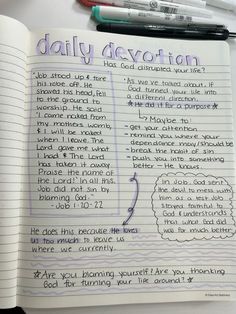 daily devotion
Has God disrupted your life?
"Job stood up & tore
his robe off. He
shaved his head, fell
to the ground to
worship. He said:
'I came naked from
my mothers womb,
& I will be naked
when I leave. The
Lord gave me what
I had & The Lord
has taken it away.
Praise the name of
the Lord!' In all this,
Job did not sin by
blaming God."
- Job 1:20-22
• As we've talked about, if
God turned your life into
a different direction,
☆ He did it for a purpose ☆
Maybe to:
- get your attention
- remind you where your
dependance may/should be
- break the habit of sin
- push you into something
better - He knows
In Job, God sent
the devil to mess with
him as a test. Job
stayed faithful to
God & understands
that what God did
was for much better.
He does this because He loves
us too much to leave us
where we currently.
☆ Are you blaming yourself? Are you thanking
God for turning your life around? ☆